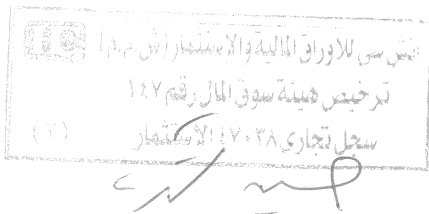 اتش سي للاوراق المالية والاستثمار (ش.م.م) HC
ترخيص هيئة سوق المال رقم ١٤٧
سجل تجارى ٤٧٠٣٨ الاستثمار (٣)